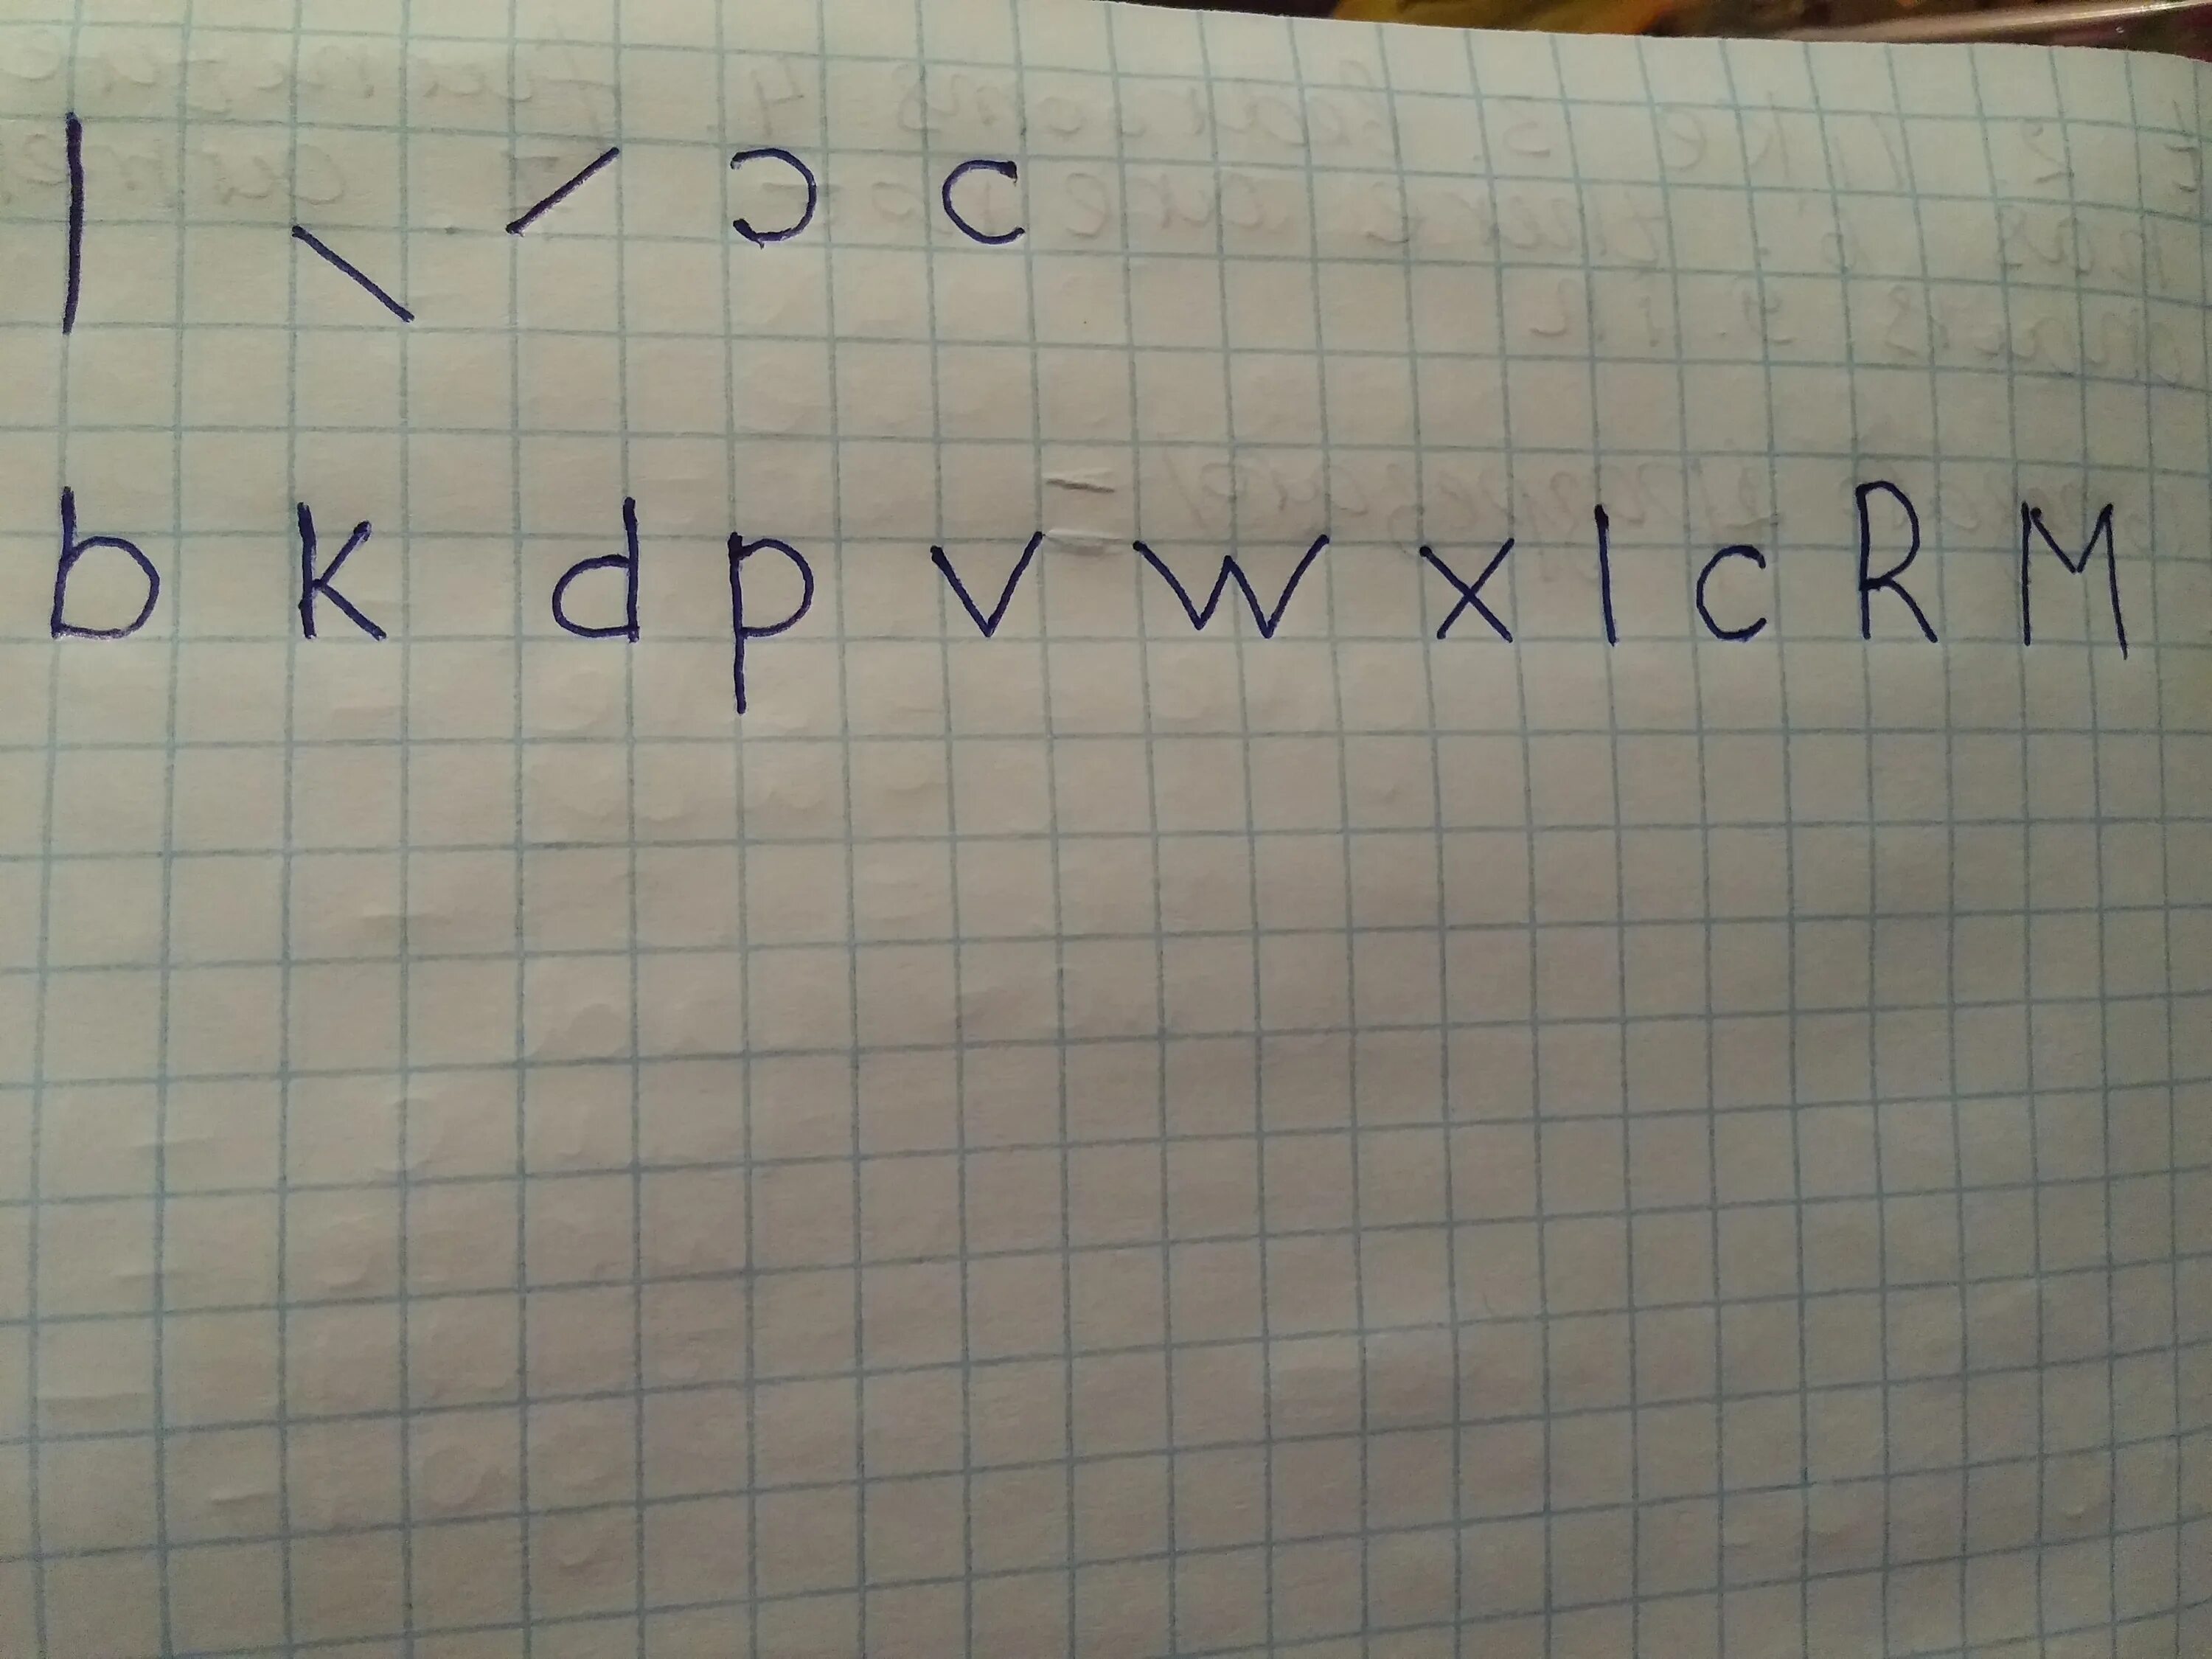 | \ / ɔ c
b k d p v w x l c R M